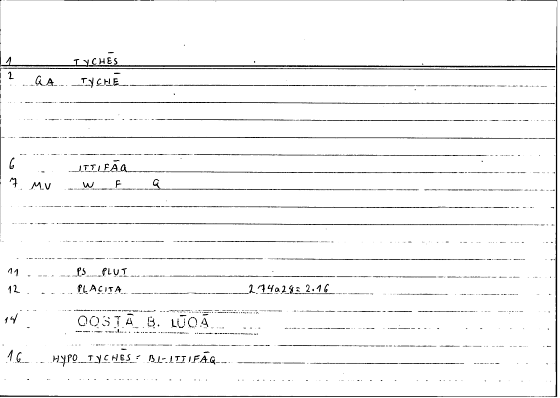 1 TYCHĒS
2 GA TYCHĒ
6 ITTIFĀQ
7 M.V W F Q
11 PS PLUT
12 PLACITA 274a28 = 2.16
14 QOSṬĀ B. LŪQĀ
16 HYPO TYCHĒS = BI-ITTIFĀQ